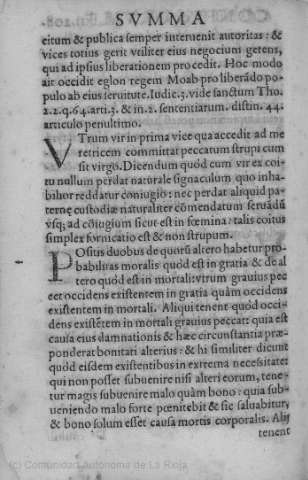 SVMMA
citum & publica semper interuenit autoritas: &
vices totius gerit vtiliter eius negocium gerens,
qui ad ipsius liberationem procedit. Hoc modo
ait occidit eglon regem Moab pro liberãdo po-
pulo ab eius seruitute. Iudic. 3. vide sanctum Tho.
2.2.q.64.arti.3. & in.2. sententiarum. distin. 44.
articulo penultimo.
VTrum vir in prima vice qua accedit ad me
retricem committat peccatum strupi cum
sit virgo. Dicendum quòd cum vir ex coi-
tu nullum perdat naturale signaculum quo inha-
bilior reddatur coniugio: nec perdat aliquid pa-
ternę custodiæ naturaliter cõmendatum seruãdũ
vsq; ad cõiugium sicut est in fœmina: talis coitus
simplex fornicatio est & non strupum.
POsitis duobus de quorũ altero habetur pro-
babilitas moralis quòd est in gratia & de al
tero quòd est in mortali: vtrum grauius pec
cet occidens existentem in gratia quàm occidens
existentem in mortali. Aliqui tenent quòd occi-
dens existẽtem in mortali grauius peccat: quia est
causa eius damnationis & hæc circunstantia præ-
ponderat bonitati alterius: & hi similiter dicunt
quòd eisdem existentibus in extrema necessitate:
qui non posset subuenire nisi alteri eorum, tene-
tur magis subuenire malo quàm bono: quia sub-
ueniendo malo forte pœnitebit & sic saluabitur,
& bono solum esset causa mortis corporalis. Alij
tenent
(c) Comunidad Autónoma de La Rioja